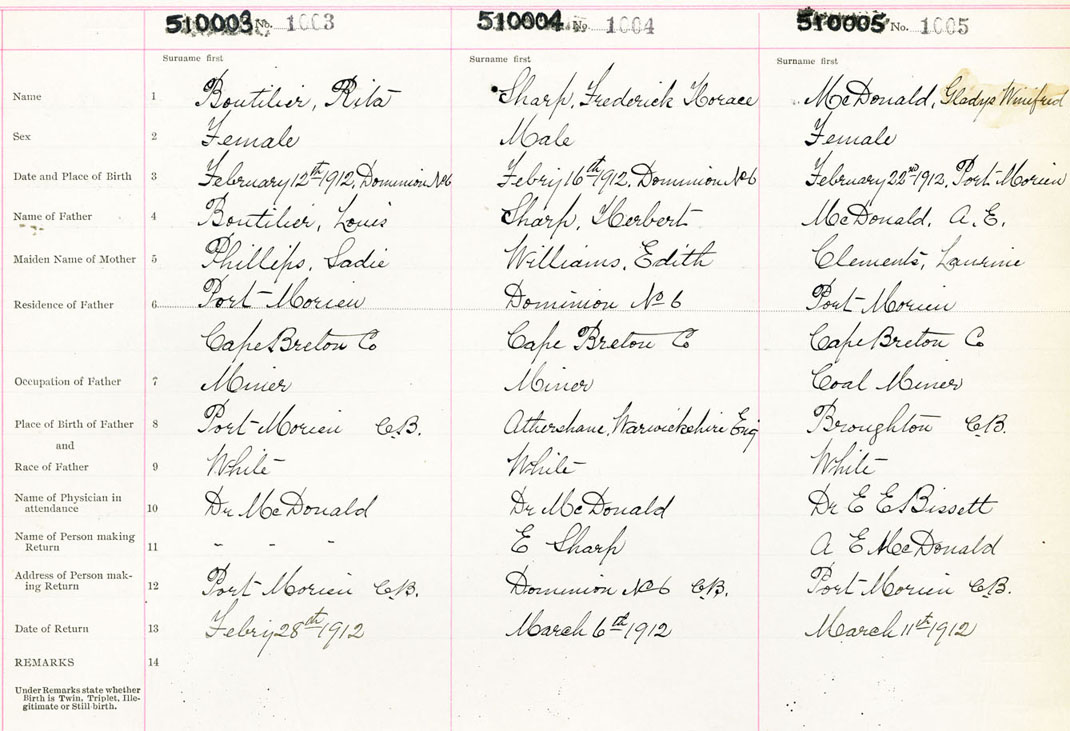 510003 No. 1003 510004 No. 1004 510005 No. 1005
Surname first Surname first Surname first
Name 1 Boutilier, Rita Sharp, Frederick Horace McDonald, Gladys Winifred
Sex 2 Female Male Female
Date and Place of Birth 3 February 12th 1912, Dominion No 6 Febriy 16th 1912, Dominion No 6 February 22nd 1912, Port Morien
Name of Father 4 Boutilier, Louis Sharp, Herbert McDonald, A. E.
Maiden Name of Mother 5 Phillips, Sadie Williams, Edith Clements, Laurine
Residence of Father 6 Port Morien Dominion No 6 Port Morien
Cape Breton Co Cape Breton Co Cape Breton Co
Occupation of Father 7 Miner Miner Coal Miner
Place of Birth of Father 8 Port Morien C.B. Athershane, Warwickshire Eng Broughton C.B.
and
Race of Father 9 White White White
Name of Physician in
attendance 10 Dr McDonald Dr McDonald Dr E E Bissett
Name of Person making
Return 11 - - - E Sharp A E McDonald
Address of Person mak-
ing Return 12 Port Morien C.B. Dominion No 6 C.B. Port Morien C.B.
Date of Return 13 Febriy 28th 1912 March 6th 1912 March 11th 1912
REMARKS 14
Under Remarks state whether
Birth is Twin, Triplet, Ille-
gitimate or Still-birth.